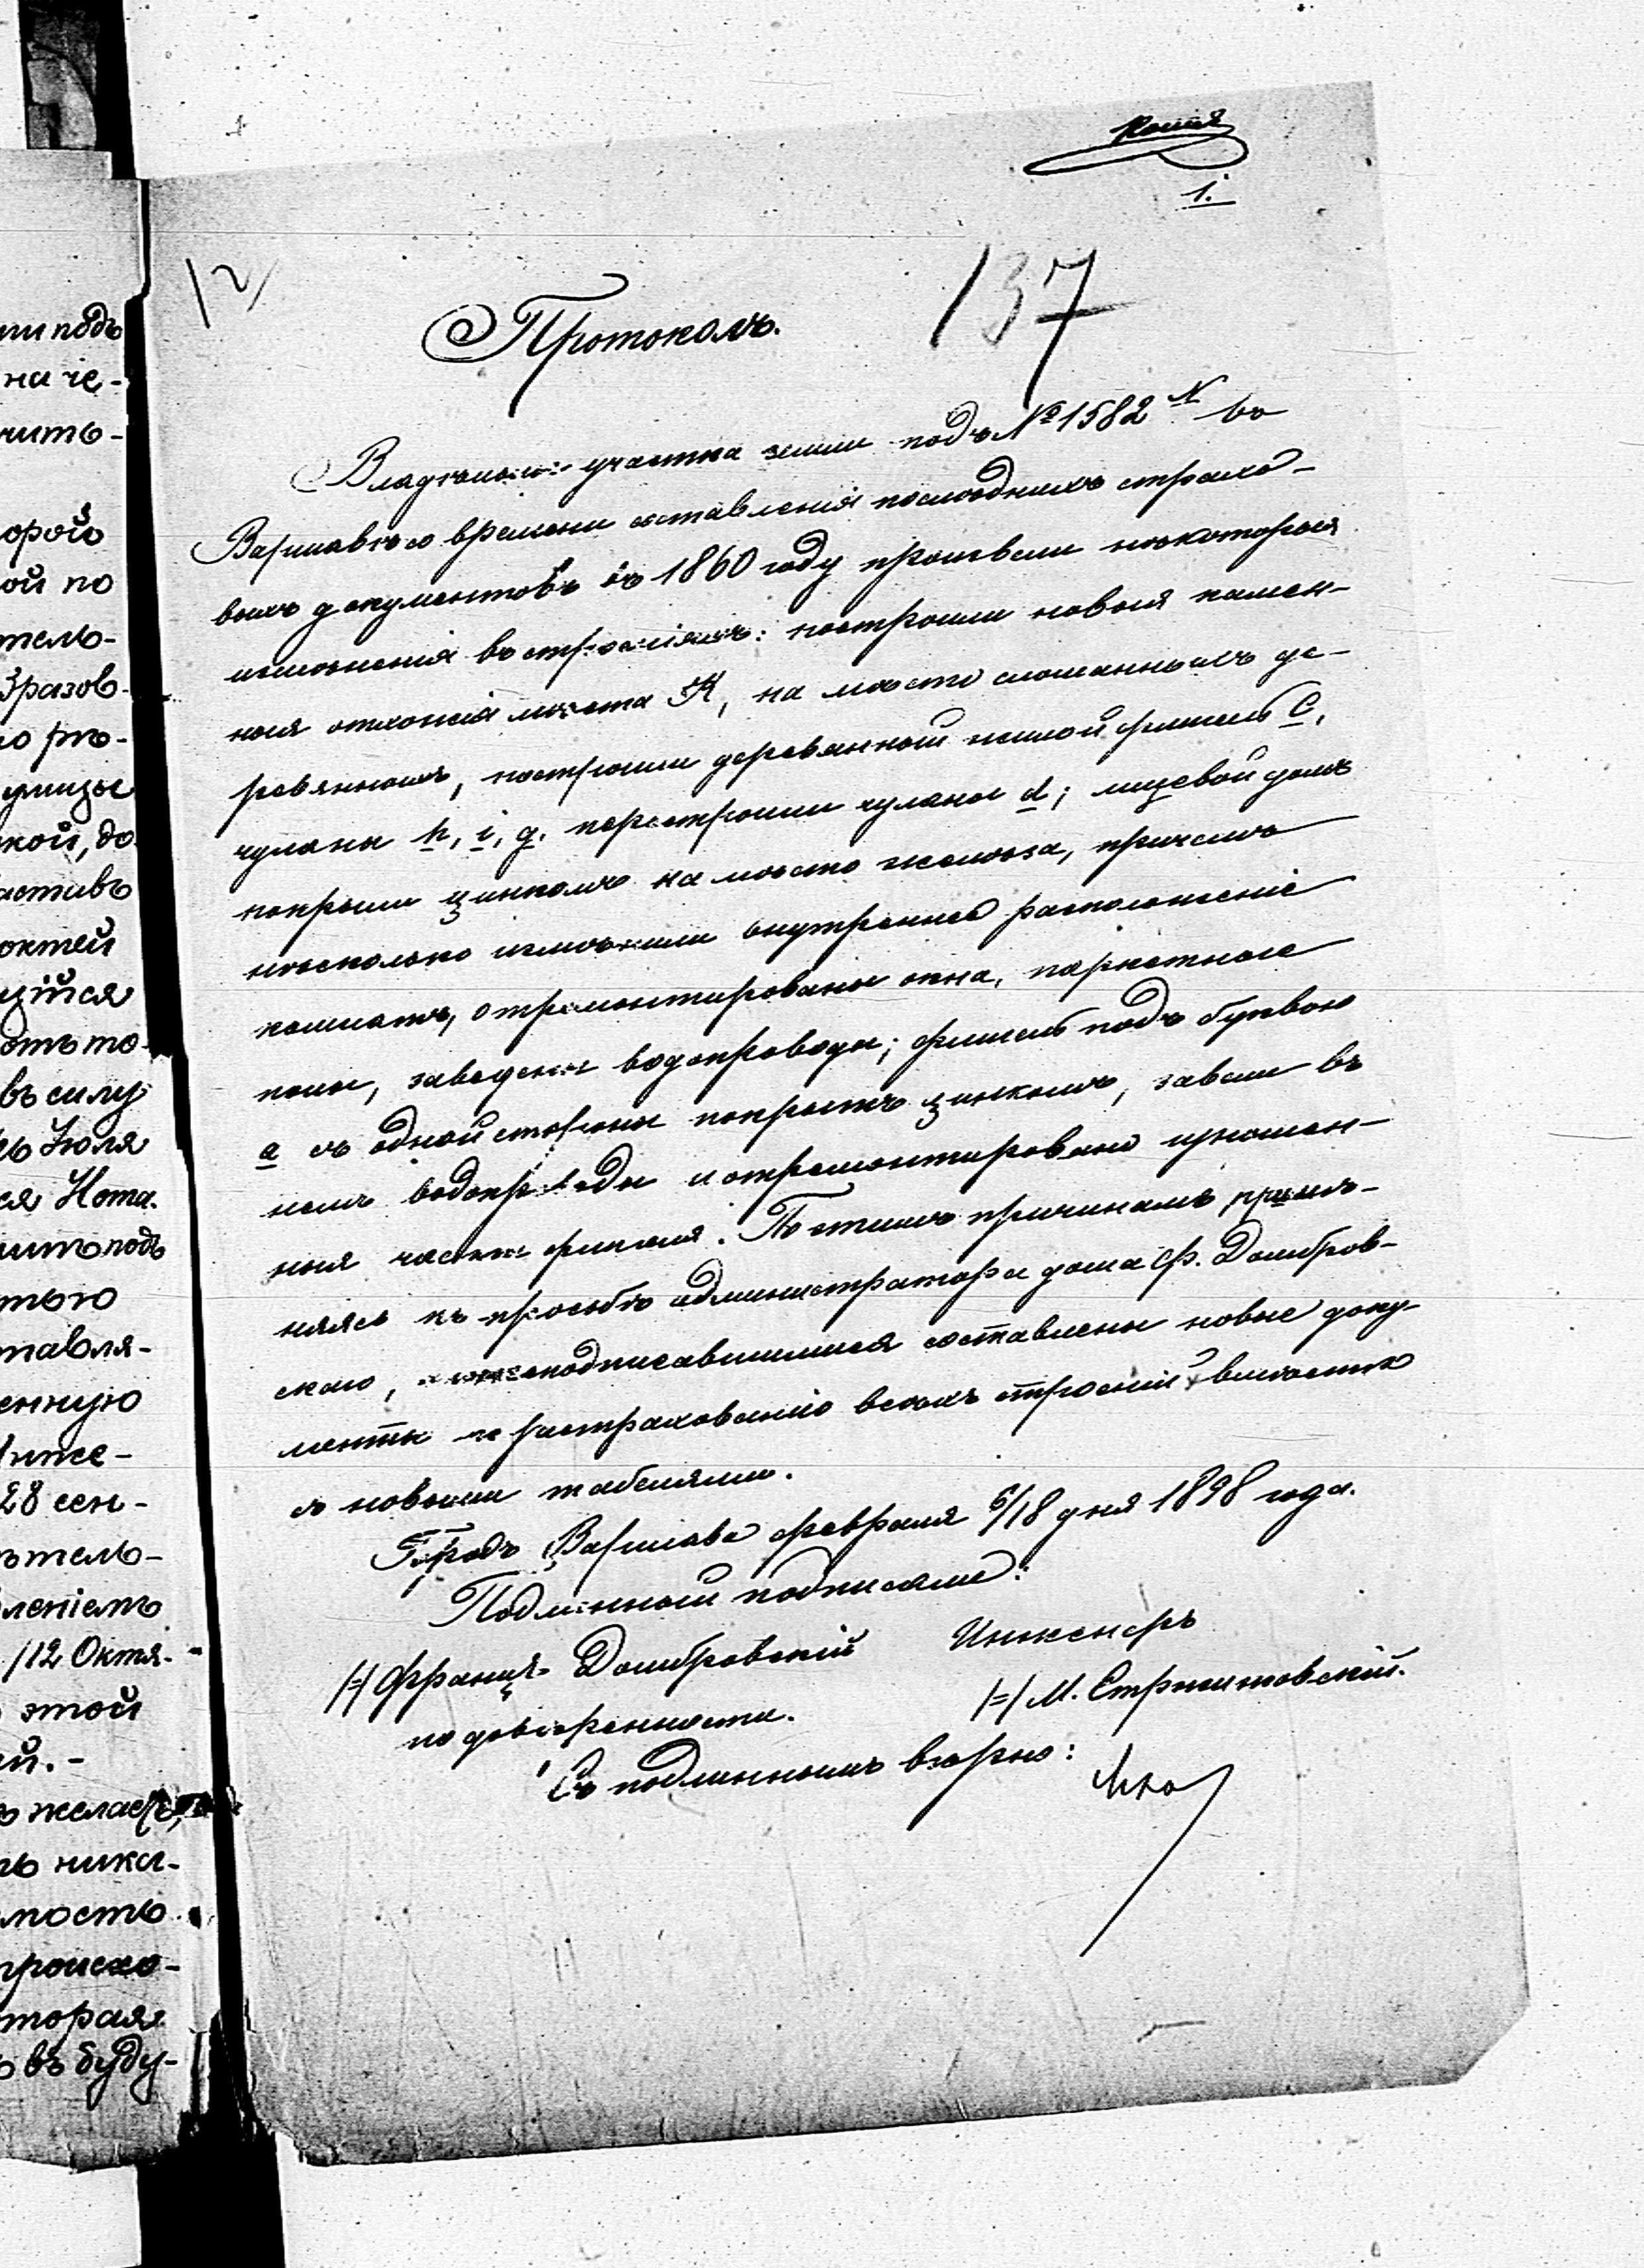 ми подъ
на че-
чить-
орой
ой по
тель-
Зразов-
ю ры-
улицы
кой, до
астивъ
октей
щійся
отъ то-
въ силу
Іюля
ся Нота-
подъ
тью
тавля-
енную
Инже-
28 сен-
тель-
леніемъ
/12 Октя-
этой
ей.-
ъ желаетъ,
ника-
мость
происхо-
торая
въ буду-
Копія
1.
12/
137
Протоколъ.
Владѣльцы участка земли подъ № 1582 N въ
Варшавѣ со времени составленія послѣднихъ страхо-
выхъ документовъ въ 1860 году произвели нѣкоторыя
измѣненія въ строеніяхъ: построили новыя камен-
ныя отхожія мѣста К, на мѣсто сломанныхъ де-
ревянныхъ, построили деревянный жилой флигель С,
чуланы h, i, g. перестроили чуланы d; лицевой домъ
покрыли цинкомъ на мѣсто желѣза, причемъ
нѣсколько измѣнили внутреннее расположеніе
комнатъ, отремонтированы окна, паркетные
полы, заведены водопроводы; флигель подъ буквою
а съ одной стороны покрытъ цинкомъ, завели въ
немъ водопроводы и отремонтировано изношен-
ныя части флигеля. По этимъ причинамъ, примѣ-
няясь къ просьбѣ администратора дома Ф. Домбров-
скаго, нижеподписавшимися составлены новые доку-
менты по застрахованію всѣхъ строеній вмѣстѣ
съ новыми табелями.
Городъ Варшава февраля 6/18 дня 1898 года.
Подлинный подписали:
/=/ Францъ Домбровскій Инженеръ
по довѣренности. /=/ М. Стржитовскій.
Съ подлиннымъ вѣрно: